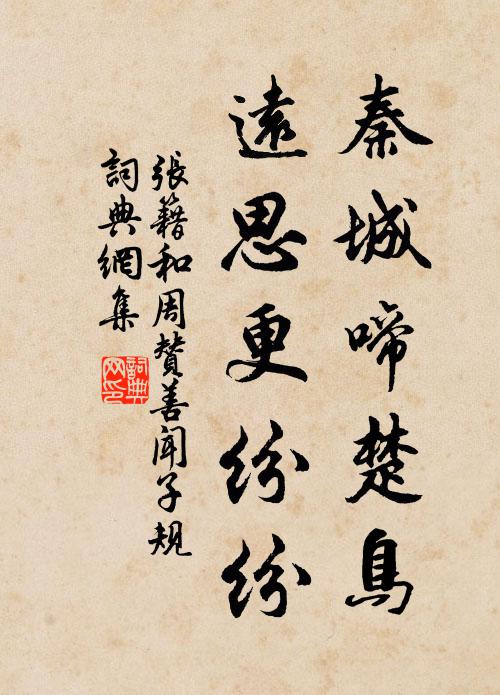 秦城啼楚鳥
遠思更紛紛
張籍和周贊善聞子規
詞典網集
詞典
网印